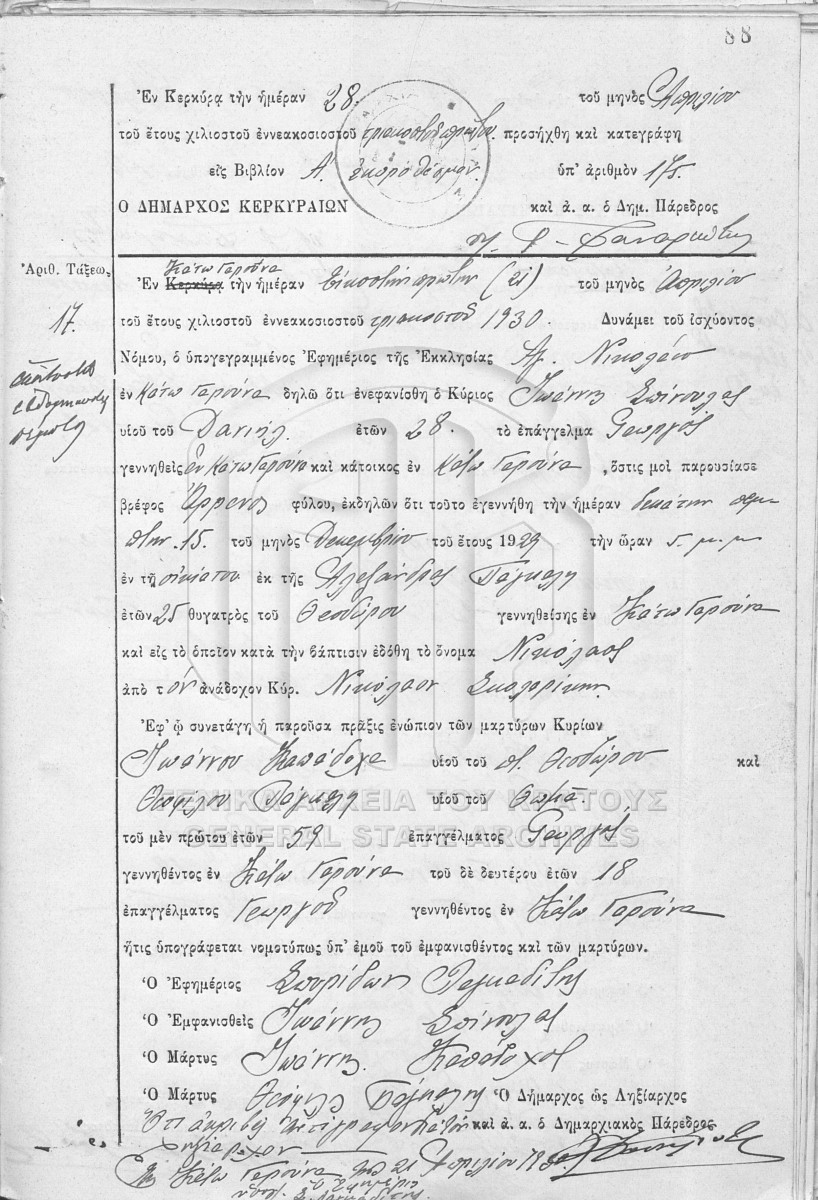 88
Ἐν Κερκύρᾳ τὴν ἡμέραν 28. τοῦ μηνὸς Ἀπριλίου
τοῦ ἔτους χιλιοστοῦ ἐννεακοσιοστοῦ τριακοστοῦ πρώτου. προσήχθη καὶ κατεγράφη
εἰς Βιβλίον Α. ἐκπροθέσμων. ὑπ' ἀριθμὸν
Ο ΔΗΜΑΡΧΟΣ ΚΕΡΚΥΡΑΙΩΝ καὶ ἀ. α. ὁ Δημ. Πάρεδρος
Ἀριθ. Τάξεως
17.
Κάτω Γαρούνα
Ἐν Κερκύρᾳ τὴν ἡμέραν Εἰκοστὴν πρώτην (21) τοῦ μηνὸς Ἀπριλίου
τοῦ ἔτους χιλιοστοῦ ἐννεακοσιοστοῦ τριακοστοῦ 1930. Δυνάμει τοῦ ἰσχύοντος
Νόμου, ὁ ὑπογεγραμμένος Ἐφημέριος τῆς Ἐκκλησίας Αγ. Νικολάου
ἐν Κάτω Γαρούνα δηλῶ ὅτι ἐνεφανίσθη ὁ Κύριος Ἰωάννης Σπίνουλας
υἱοῦ τοῦ Δανιήλ. ἐτῶν 28. τὸ ἐπάγγελμα Γεωργός
γεννηθεὶς Ἐν Κάτω Γαρούνα καὶ κάτοικος ἐν Κάτω Γαρούνα, ὅστις μοὶ παρουσίασε
βρέφος Ἄρρενος φύλου, ἐκδηλῶν ὅτι τοῦτο ἐγεννήθη τὴν ἡμέραν δεκάτην πεμ-
πτην. 15. τοῦ μηνὸς Δεκεμβρίου τοῦ ἔτους 1929 τὴν ὥραν μ. μ
ἐν τῇ οἰκία του ἐκ τῆς Αλεξάνδρας Πάγκαλη
ἐτῶν 25 θυγατρὸς τοῦ Θεοδώρου γεννηθείσης ἐν Κάτω Γαρούνα
καὶ εἰς τὸ ὁποῖον κατὰ τὴν βάπτισιν ἐδόθη τὸ ὄνομα Νικόλαος
ἀπὸ τὸν ἀνάδοχον Κύρ. Νικόλαον
Ἐφ' ᾧ συνετάγη ἡ παροῦσα πρᾶξις ἐνώπιον τῶν μαρτύρων Κυρίων
Ἰωάννου Καπάδοχα υἱοῦ τοῦ Θεοδώρου καὶ
Θεοφίλου Πάγκαλη υἱοῦ τοῦ Θωμᾶ.
ΓΕΝΙΚΑ ΑΡΧΕΙΑ ΤΟΥ ΚΡΑΤΟΥΣ
GENERAL STATE ARCHIVES
τοῦ μὲν πρώτου ἐτῶν 59 ἐπαγγέλματος Γεωργός
γεννηθέντος ἐν Κάτω Γαρούνα τοῦ δὲ δευτέρου ἐτῶν 18
ἐπαγγέλματος Γεωργοῦ γεννηθέντος ἐν Κάτω Γαρούνα
ἥτις ὑπογράφεται νομοτύπως ὑπ' ἐμοῦ τοῦ ἐμφανισθέντος καὶ τῶν μαρτύρων.
Ὁ Ἐφημέριος Σπυρίδων
Ὁ Ἐμφανισθεὶς Ἰωάννης Σπίνουλας
Ὁ Μάρτυς Ἰωάννης Καπάδοχας
Ὁ Μάρτυς Θεόφιλος Πάγκαλης Ὁ Δήμαρχος ὡς Ληξίαρχος
Ὅτι ἀκριβὲς ἀντίγραφον καὶ ἀ. α. ὁ Δημαρχιακὸς Πάρεδρος
Ἐν Κάτω Γαρούνα τῇ 21 Ἀπριλίου